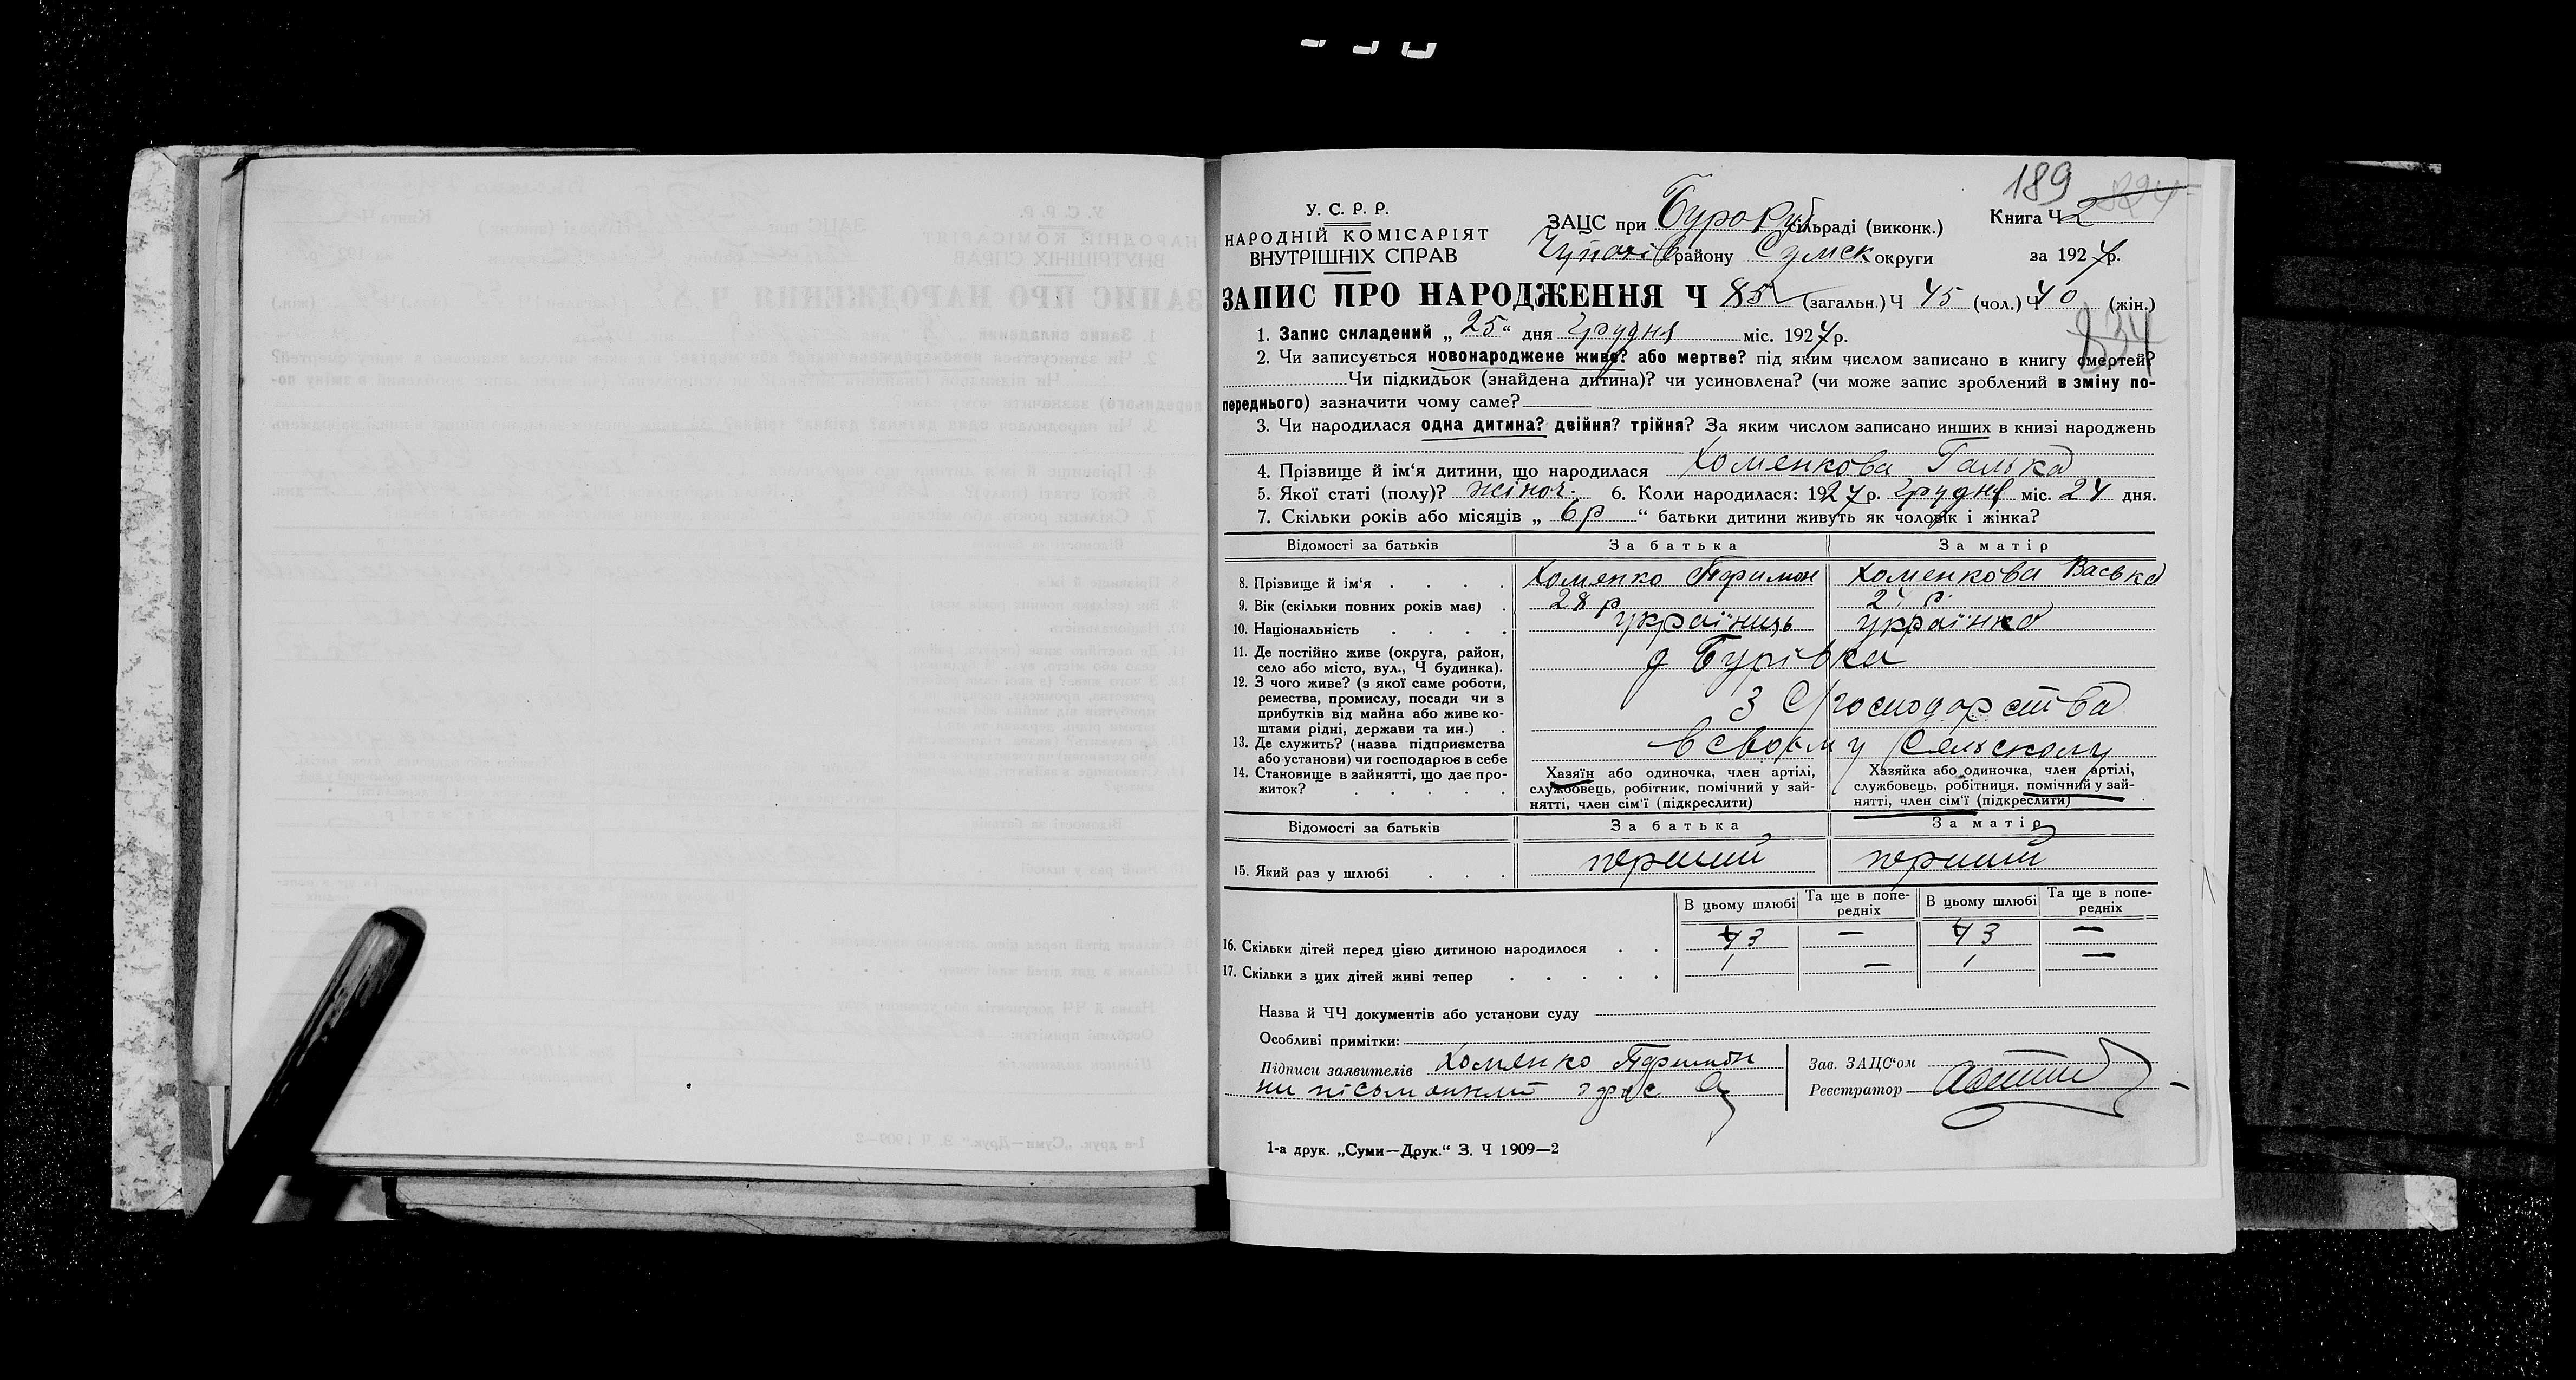 189
У. С. Р. Р.
НАРОДНІЙ КОМІСАРІЯТ
ВНУТРІШНІХ СПРАВ
ЗАЦС при Буро сільраді (виконк.)
району Сумск округи
Книга Ч 2
за 1927 р.
ЗАПИС ПРО НАРОДЖЕННЯ Ч 85 (загальн.) Ч 45 (чол.) Ч 40 (жін.)
834
1. Запис складений „ 25 “ дня Грудня міс. 1927 р.
2. Чи записується новонароджене живе? або мертве? під яким числом записано в книгу смертей?
Чи підкидьок (знайдена дитина)? чи усиновлена? (чи може запис зроблений в зміну по-
переднього) зазначити чому саме?
3. Чи народилася одна дитина? двійня? трійня? За яким числом записано инших в книзі народжень
4. Прізвище й ім‘я дитини, що народилася Хоменкова Галька
5. Якої статі (полу)? жіноч. 6. Коли народилася: 1927 р. Грудня міс. 24 дня.
7. Скільки років або місяців „ 6 р “ батьки дитини живуть як чоловік і жінка?
Відомості за батьків За батька За матір
8. Прізвище й ім‘я Хоменко Хоменкова Васька
9. Вік (скільки повних років має) 28 р 24 р.
10. Національність українць українка
11. Де постійно живе (округа, район,
село або місто, вул., Ч будинка).
Бурівка
12. З чого живе? (з якої саме роботи,
ремества, промислу, посади чи з
прибутків від майна або живе ко-
штами рідні, держави та ин.)
З С/господарства
13. Де служить? (назва підприємства
або установи) чи господарює в себе
в своєму Сельскому
14. Становище в зайнятті, що дає про-
житок?
Хазяїн або одиночка, член артілі,
службовець, робітник, помічний у зай-
нятті, член сім‘ї (підкреслити)
Хазяйка або одиночка, член артілі,
службовець, робітниця, помічний у зай-
нятті, член сім‘ї (підкреслити)
Відомості за батьків За батька За матір
15. Який раз у шлюбі перший перший
В цьому шлюбі Та ще в попе-
редніх В цьому шлюбі Та ще в попе-
редніх
16. Скільки дітей перед цією дитиною народилося 3 — 3 —
17. Скільки з цих дітей живі тепер 1 — 1 —
Назва й ЧЧ документів або установи суду
Особливі примітки:
Підписи заявителів Хоменко
Зав. ЗАЦС‘ом
Реєстратор
1-а друк. „Суми—Друк.“ З. Ч 1909—2